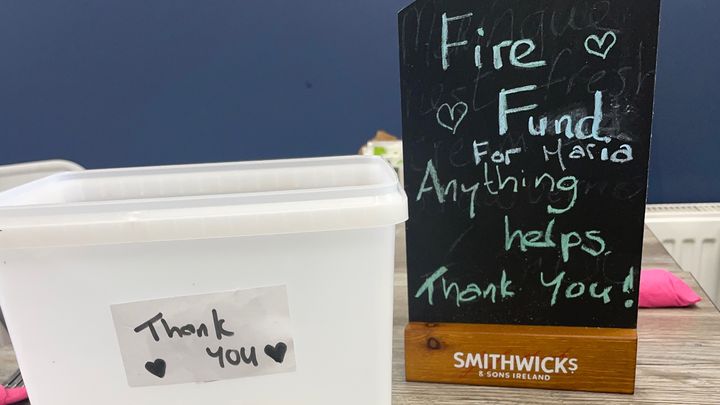 Fire
Fund
For Maria
Anything
helps.
Thank You!
SMITHWICKS
& SONS IRELAND
Thank
You